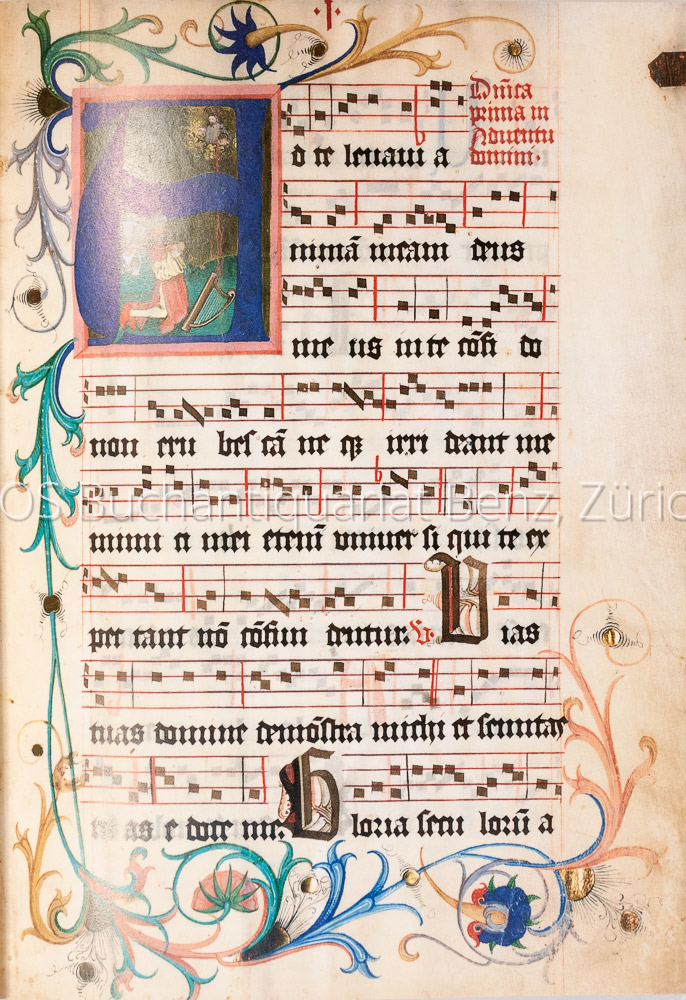 ·I·
Dñica
prima in
Aduentu
domini·
A
d te leuaui a
nimā meam deus
me us in te cōfi do
non eru bes cā ne qꝫ irri deant me
inimi ci mei etenī vniuer si qui te ex
pec tant nō cōfun dentur. V. Vias
tuas domine demōstra michi et semitas
tu as e doce me. Gloria secu lorū a
OS Buchantiquariat Benz, Züric